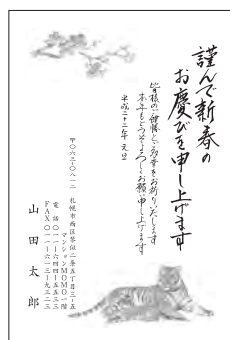 謹んで新春の
お慶びを申し上げます
皆様のご健勝とご多幸をお祈りいたします
本年もどうぞよろしくお願い申し上げます
平成二十二年 元旦
〒〇六三-〇八一二
札幌市西区琴似二条五丁目三-五
マンションMOMO一階
電話〇一一-六四四-五五三三
FAX〇一一-六一三-九三二三
山田太郎